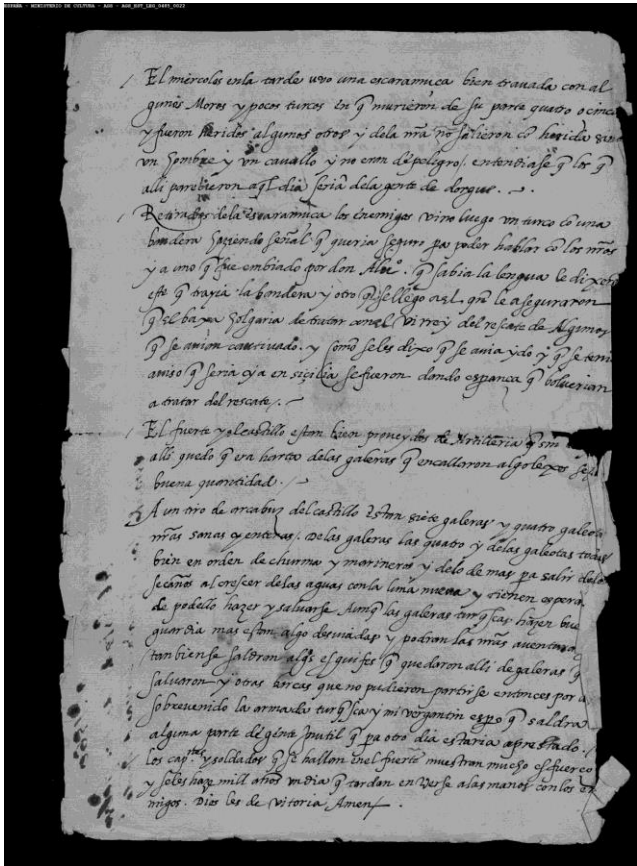 ESPAÑA - MINISTERIO DE CULTURA - AGS - AGS_EST_LEG_0485_0022
/ El miercoles en la tarde uvo una escaramuca bien travada con al
gunos Moros y pocos turcos en q̃ murieron de su parte quatro o cinco
y fueron heridos algunos otros y dela nrã no salieron cõ herida sino
un hombre y un cavallo y no eran de peligro/. entendiase q̃ los q̃
alli parecieron aq̃l dia seriã dela gente de dorgut. ~.
/ Retirados dela escaramuca los enemigos vino luego un turco cõ una
bandera haziendo señal q̃ queria seguro pa poder hablar cõ los nrõs
y a uno q̃ fue embiado por don Alvº. q̃ sabia la lengua le dixeron
este q̃ traya la bandera y otro q̃ se llego a el. que le aseguraron
q̃ El baxa holgaria de tratar con el virrey del rescate de Algunos
q̃ se avian cautivado. y como se les dixo q̃ se avia ydo y q̃ se tenia
aviso q̃ seria ya en sicilia se fueron dando esperança q̃ bolverian
a tratar del rescate/. ~
/ El fuerte y el castillo estan bien proveydos de Artilleria q̃ sin
alli quedo q̃ era harta delas galeras q̃ encallaron algo lexos
buena quantidad. /~
/ A un tiro de arcabuz del castillo Estan siete galeras y quatro galeotas
nrãs sanas y enteras/. Delas galeras las quatro y delas galeotas todas
bien en orden de churma y marineros y delo demas pa salir delos
secaños al crescer delas aguas con la luna nueva y tienen esperã
de podello hazer y salvarse Aunq̃ las galeras turq̃scas hazen
guardia mas estan algo desviadas y podran las nrãs aventurar
tambien se saldran algs esquifes q̃ quedaron alli de galeras q̃
salvaron y otras barcas que no pudieron partirse entonces por a
sobrevenido la armada turq̃sca y mi vergantin espo q̃ saldra
alguna parte de gente Inutil q̃ pa otro dia estaria aprestado. /
Los capnes y soldados q̃ se hallan en el fuerte muestran mucho esfuerco
y seles haze mill años un dia q̃ tardan en Verse a las manos con los ene
migos. Dios les de vitoria Amen/.